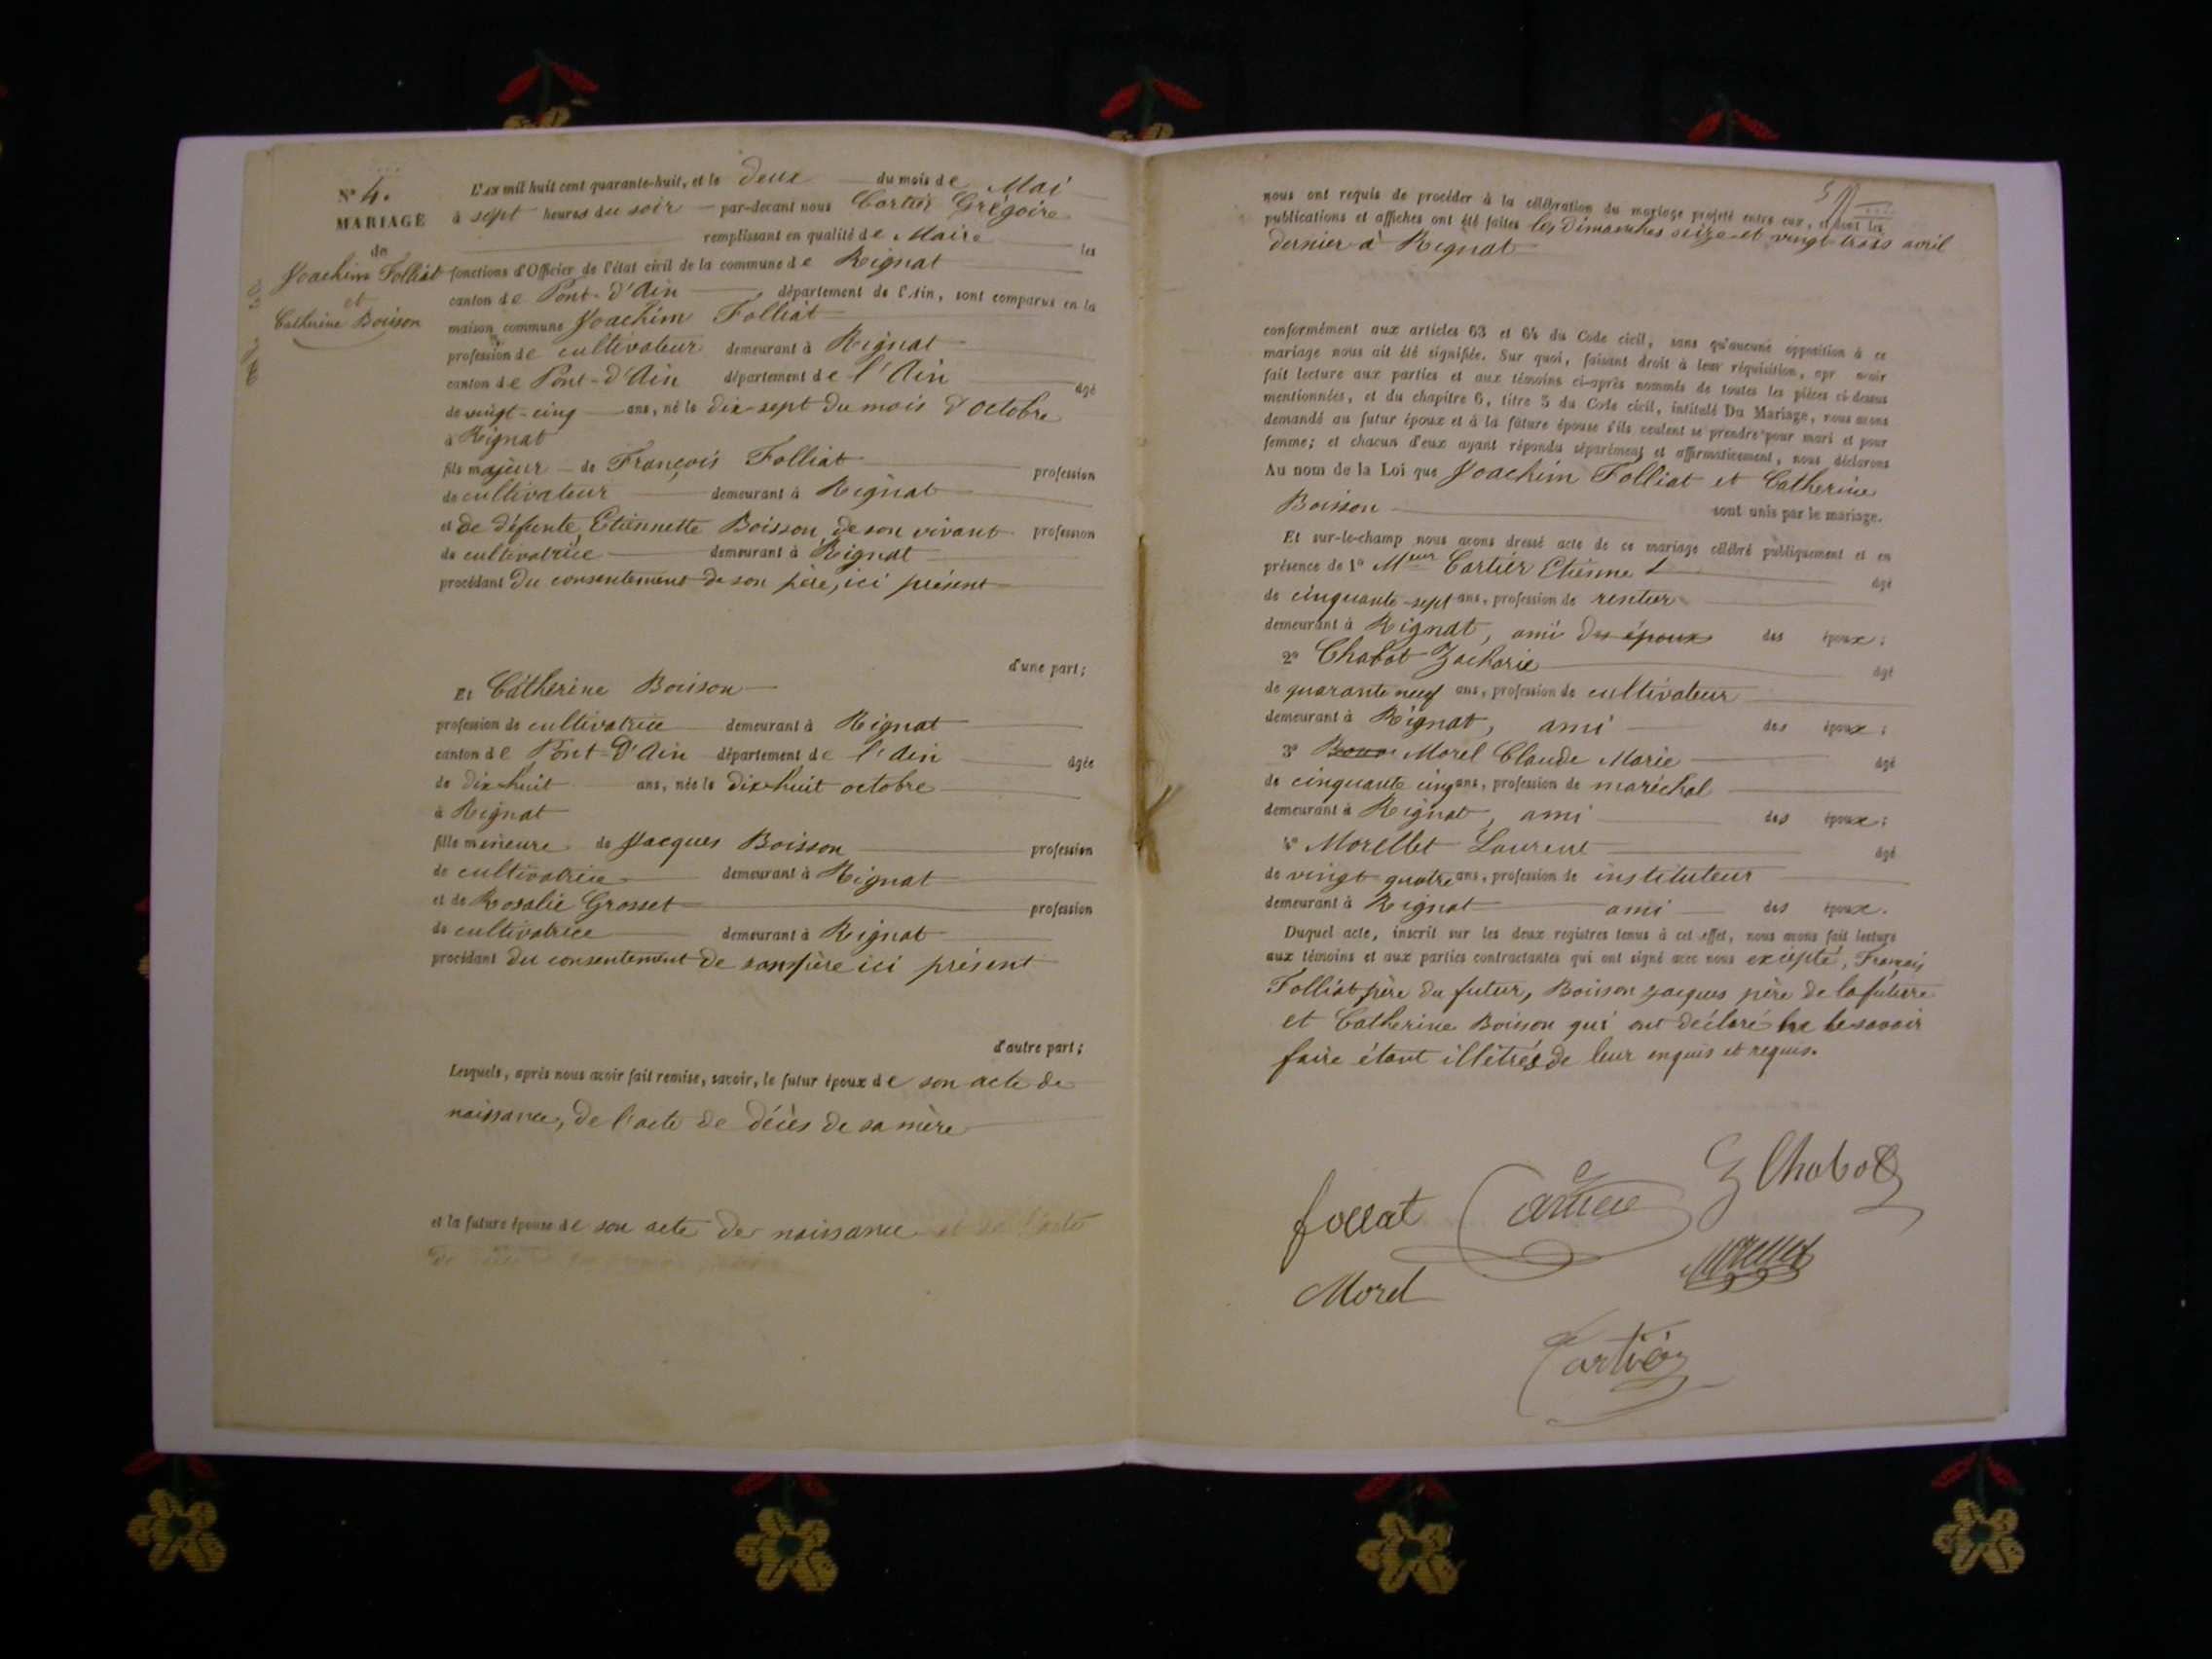 N° 4.
MARIAGE
de
Joachim Folliat
et
Catherine Boisson
L'an mil huit cent quarante-huit, et le deux du mois de Mai
à sept heures du soir par-devant nous Cartier Grégoire
remplissant en qualité de Maire les
fonctions d'Officier de l'état civil de la commune de Rignat
canton de Pont-d'Ain département de l'Ain, sont comparus en la
maison commune Joachim Folliat
profession de cultivateur demeurant à Rignat
canton de Pont-d'Ain département de l'Ain âgé
de vingt-cinq ans, né le dix-sept du mois d'octobre
à Rignat
fils majeur de François Folliat profession
de cultivateur demeurant à Rignat
et de défunte Etiennette Boisson, de son vivant profession
de cultivatrice demeurant à Rignat
procédant du consentement de son père, ici présent
d'une part;
Et Catherine Boisson
profession de cultivatrice demeurant à Rignat
canton de Pont-d'Ain département de l'Ain âgée
de dix huit ans, née le dix-huit octobre
à Rignat
fille mineure de Jacques Boisson profession
de cultivatrice demeurant à Rignat
et de Rosalie Grosset profession
de cultivatrice demeurant à Rignat
procédant du consentement de son père ici présent
d'autre part;
Lesquels, après nous avoir fait remise, savoir, le futur époux de son acte de
naissance, de l'acte de décès de sa mère
et la future épouse de son acte de naissance et de l'acte
nous ont requis de procéder à la célébration du mariage projeté entre eux, et dont les
publications et affiches ont été faites les dimanches seize et vingt-trois avril
dernier à Rignat
conformément aux articles 63 et 64 du Code civil, sans qu'aucune opposition à ce
mariage nous ait été signifiée. Sur quoi, faisant droit à leur réquisition, apr avoir
fait lecture aux parties et aux témoins ci-après nommés de toutes les pièces ci-dessus
mentionnées, et du chapitre 6, titre 5 du Code civil, intitulé Du Mariage, nous avons
demandé au futur époux et à la future épouse s'ils veulent se prendre pour mari et pour
femme; et chacun d'eux ayant répondu séparément et affirmativement, nous déclarons
Au nom de la Loi que Joachim Folliat et Catherine
Boisson sont unis par le mariage.
Et sur-le-champ nous avons dressé acte de ce mariage célébré publiquement et en
présence de 1° Meur Cartier Etienne âgé
de cinquante-sept ans, profession de rentier
demeurant à Rignat, ami des époux des époux;
2° Chabot Zacharie âgé
de quarante neuf ans, profession de cultivateur
demeurant à Rignat, ami des époux;
3° Morel Claude Marie âgé
de cinquante cinq ans, profession de maréchal
demeurant à Rignat, ami des époux;
4° Morellet Laurent âgé
de vingt quatre ans, profession de instituteur
demeurant à Rignat ami des époux.
Duquel acte, inscrit sur les deux registres tenus à cet effet, nous avons fait lecture
aux témoins et aux parties contractantes qui ont signé avec nous excepté, François
Folliat père du futur, Boisson Jacques père de la future
et Catherine Boisson qui ont déclaré ne le savoir
faire étant illétrés de leur enquis et requis.
follat Cartier Z Chabot
Morel Morellet
Cartier